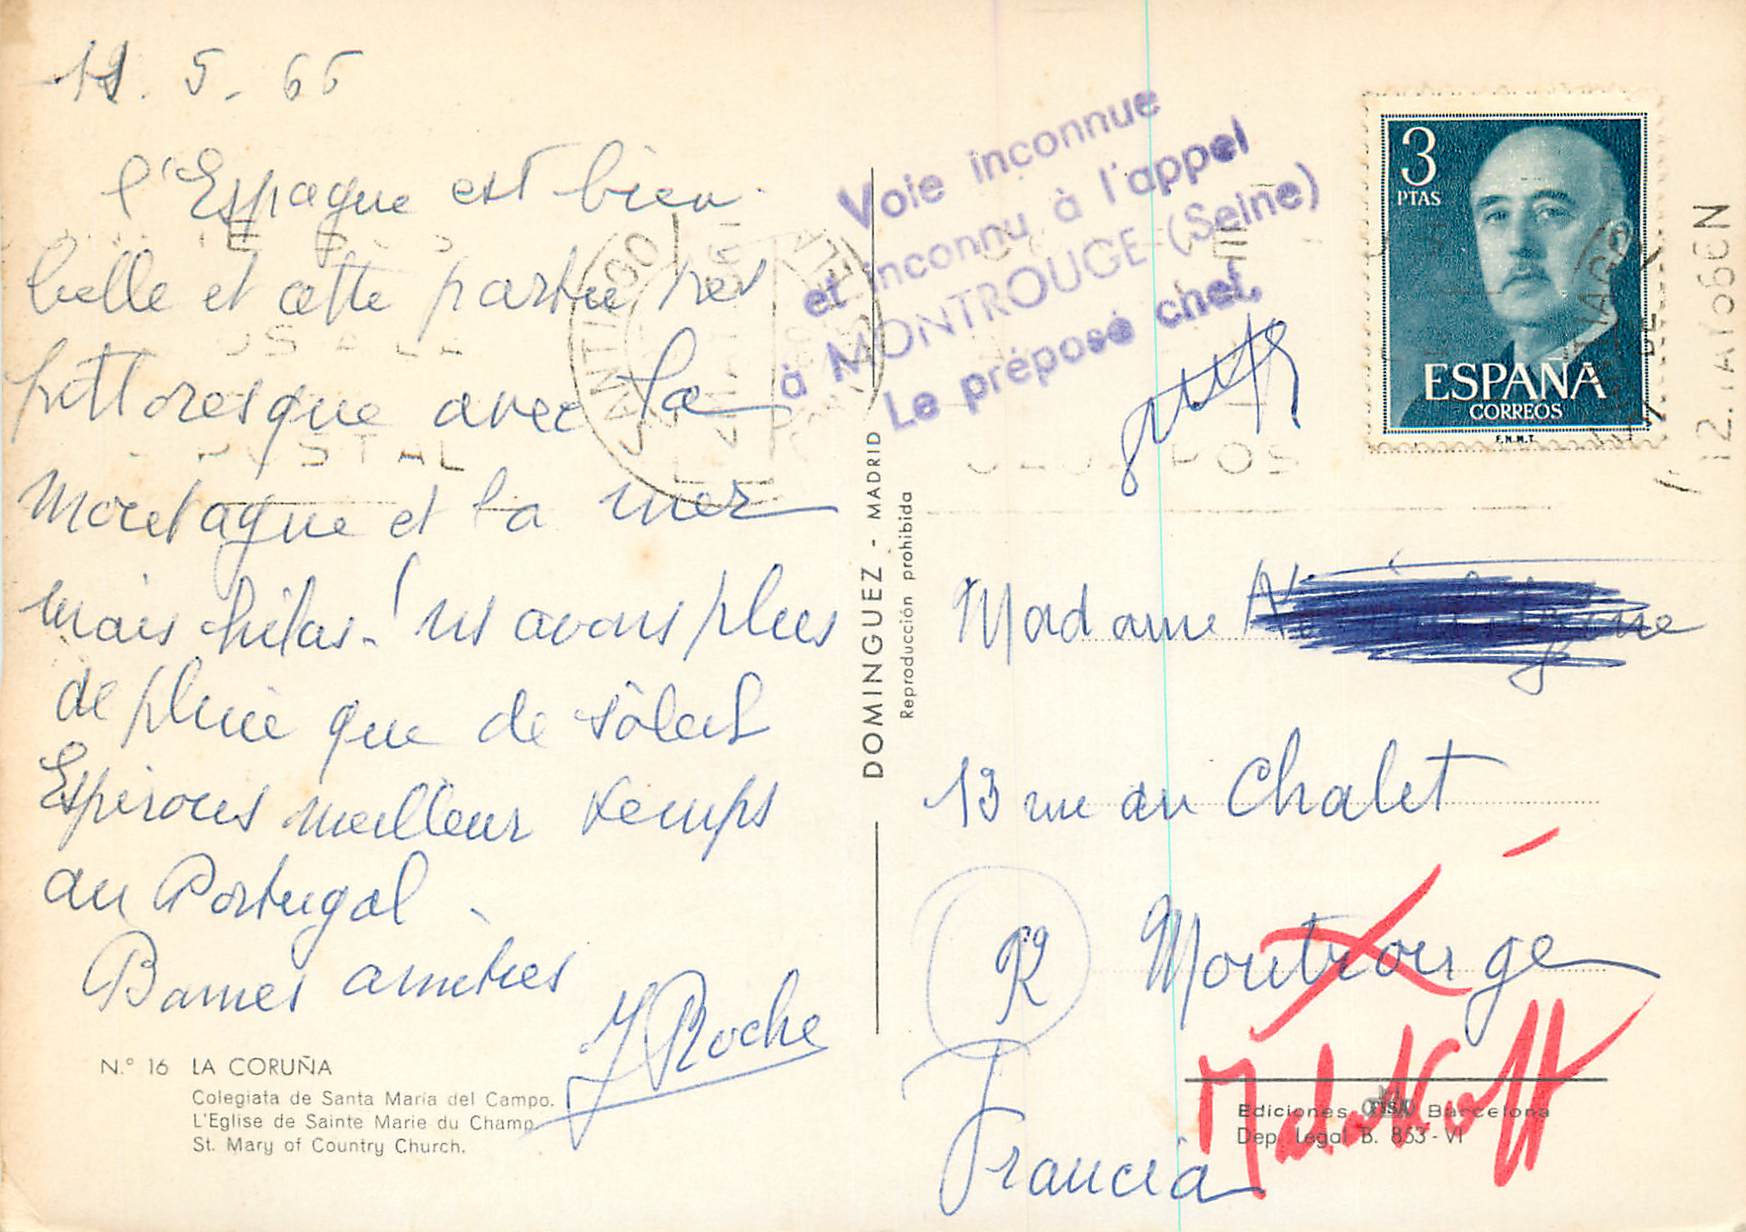 5. 66
l'Espagne est bien
belle et cette partie très
pittoresque avec la
montagne et la mer
mais hélas ! ns avons plus
de pluie que de soleil
Espérons meilleur temps
au Portugal.
Bonnes amitiés
J Roche
N.º 16 LA CORUÑA
Colegiata de Santa María del Campo.
L'Eglise de Sainte Marie du Champ.
St. Mary of Country Church.
DOMINGUEZ - MADRID
Reproducción prohibida
Voie inconnue
et inconnu à l'appel
à MONTROUGE (Seine)
Le préposé chef,
3
PTAS
ESPAÑA
CORREOS
F.N.M.T.
SANTIAGO
POSTAL
12. MAY 66 N
Madame
13 rue du Chalet
R Montrouge
Malakoff
Francia
Ediciones FISA Barcelona
Dep. Legal B. 853-VI